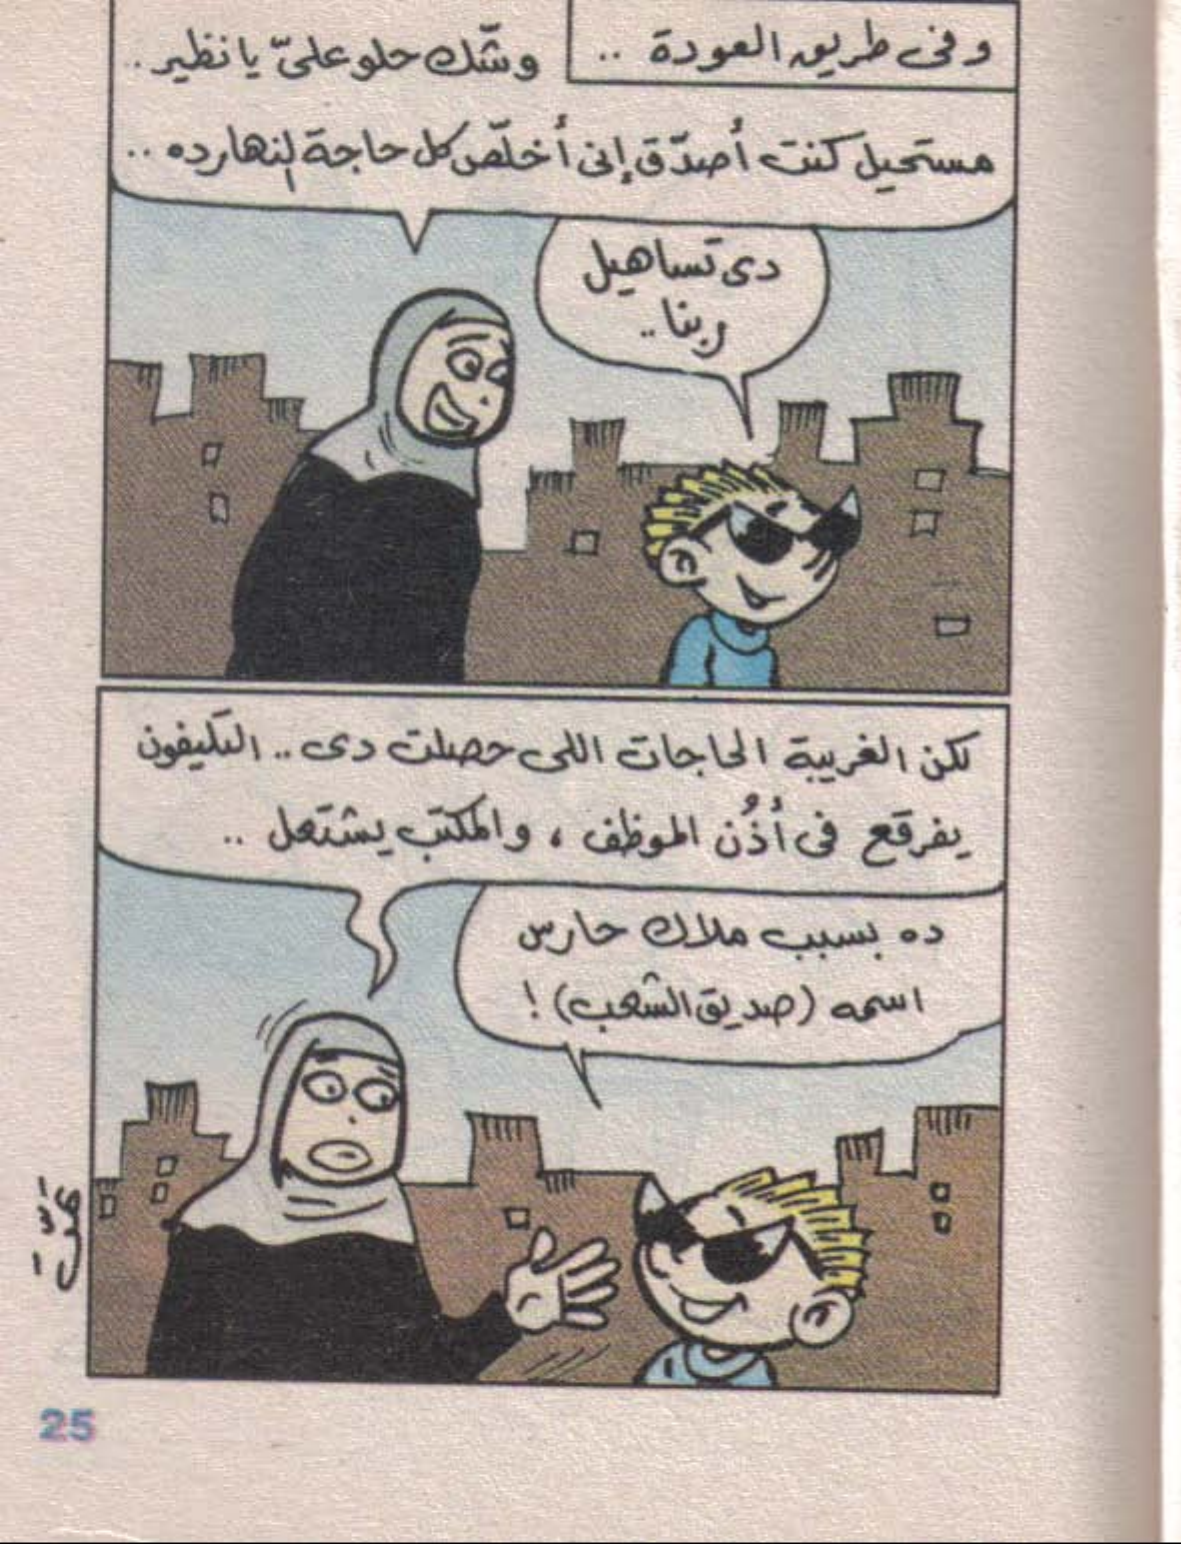 وفى طريق العودة ..
وشّك حلو علىّ يا نظير ..
مستحيل كنت أُصدّق إنى أخلّص كل حاجة إنهارده ..
دى تساهيل
ربنا ..
لكن الغريبة الحاجات اللى حصلت دى .. التليفون
يفرقع فى أُذُن الموظف ، والمكتب يشتعل ..
ده بسبب ملاك حارس
اسمه (صديق الشعب) !
25